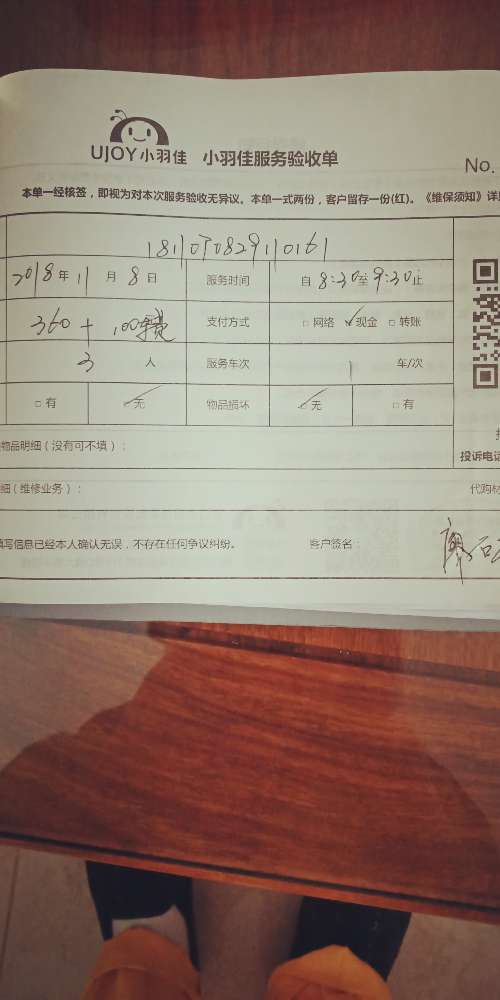 UJOY小羽佳 小羽佳服务验收单
No.
本单一经核签，即视为对本次服务验收无异议。本单一式两份，客户留存一份(红)。《维保须知》详
2018年11月8日 服务时间 自8:30至9:30止
360+100 支付方式 □网络 ☑现金 □转账
3人 服务车次 1 车/次
□有 ☑无 物品损坏 ☑无 □有
物品明细（没有可不填）：
投诉电话
细（维修业务）： 代购材
填写信息已经本人确认无误，不存在任何争议纠纷。 客户签名：